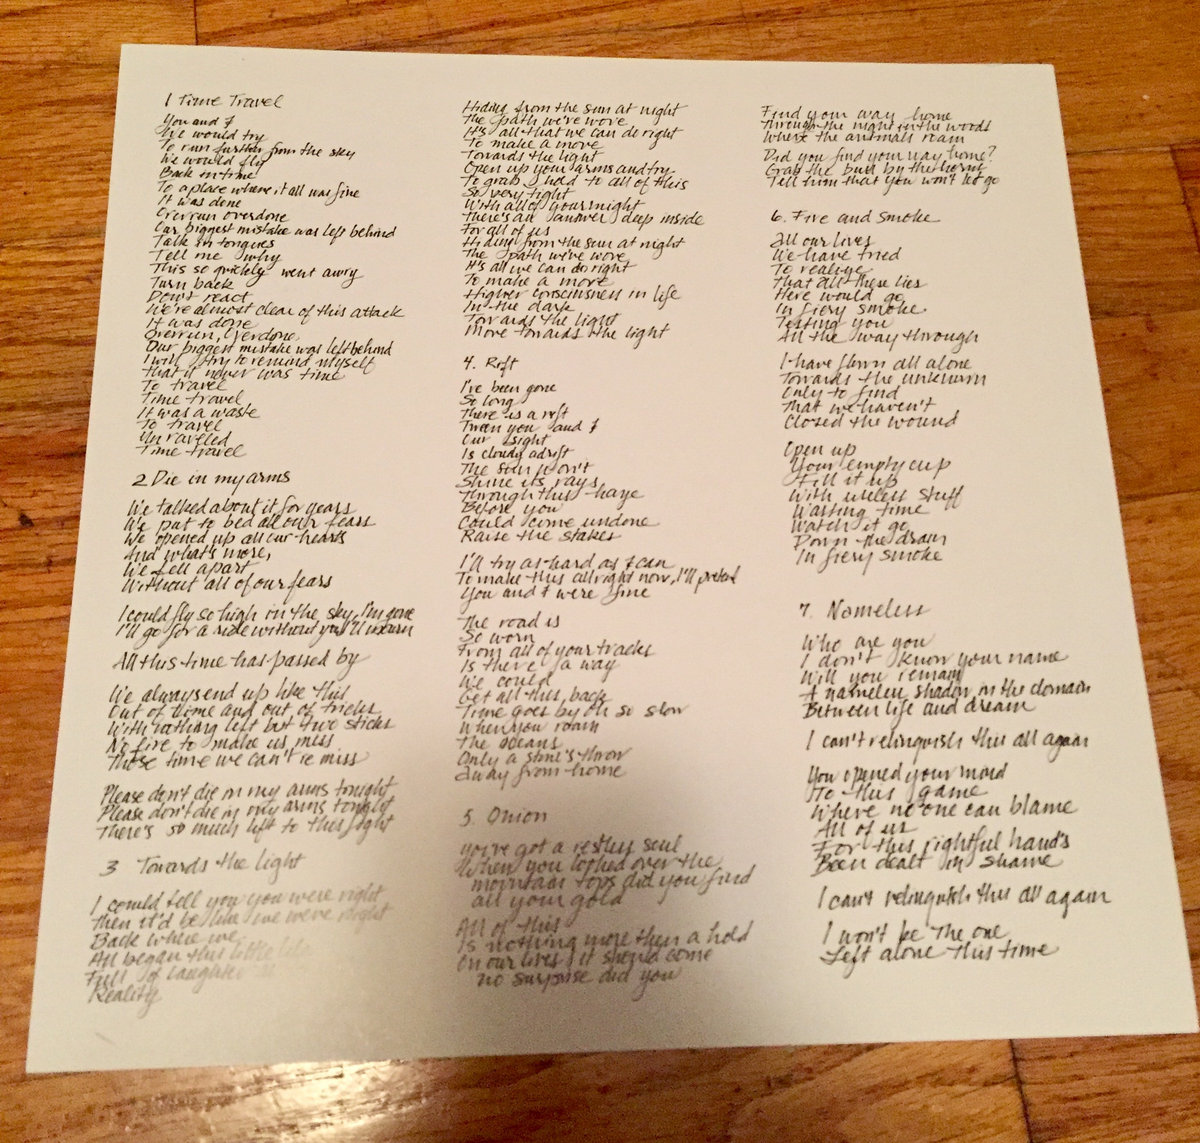 1 Time Travel
You and I
We would try
To run further from the sky
We would fly
Back in time
To a place where it all was fine
It was done
Overrun overdone
Our biggest mistake was left behind
Talk in tongues
Tell me why
This so quickly went awry
Turn back
Don't react
We're almost clear of this attack
It was done
Overrun, Overdone,
Our biggest mistake was left behind
I will try to remind myself
that it never was time
To travel
Time travel
It was a waste
To travel
Unraveled
Time travel
2 Die in my arms
We talked about it for years
We put to bed all our fears
We opened up all our hearts
And what's more,
We fell apart
Without all of our fears
I could fly so high in the sky, I'm gone
I'll go for a ride without you I'll mourn
All this time has passed by
We always end up like this
Out of time and out of tricks
With nothing left but two sticks
No fire to make us miss
Those time we can't miss
Please don't die in my arms tonight
Please don't die in my arms tonight
There's so much left to this fight
3 Towards the light
I could tell you you were right
then it'd be like we were right
Back where we
All began this little life
Full of laughter in
Reality
Hiding from the sun at night
the path we've wove
It's all that we can do right
To make a move
Towards the light
Open up your arms and try
To grab hold to all of this
So very tight
With all of your might
there's an answer deep inside
For all of us
Hiding from the sun at night
The path we've wove
It's all we can do right
To make a move
Higher consciousness in life
In the dark
Towards the light
Move towards the light
4. Rift
I've been gone
So long
There is a rift
Tween you and I
Our sight
Is cloudy adrift
The sun won't
Shine its rays
Through this haze
Before you
Could come undone
Raise the stakes
I'll try as hard as I can
To make this allright now, I'll pretend
You and I were fine
The road is
So worn
From all of your tracks
Is there a way
We could
Get all this back
Time goes by oh so slow
When you roam
The oceans
Only a stone's throw
away from home
5. Onion
You've got a restless soul
When you looked over the
mountain tops did you find
all your gold
All of this
Is nothing more then a hold
On our lives it should come
no surprise did you
Find your way home
Through the night in the woods
Where the animals roam
Did you find your way home?
Grab the bull by the horns
Tell him that you won't let go
6. Fire and Smoke
All our lives
We have tried
To realize
That all these lies
Here would go
In fiery smoke
Testing you
All the way through
I have flown all alone
Towards the unknown
Only to find
That we haven't
Closed the wound
Open up
Your empty cup
Fill it up
With useless stuff
Wasting time
Watch it go
Down the drain
In fiery smoke
7. Nameless
Who are you
I don't know your name
Will you remain
A nameless shadow in the domain
Between life and dream
I can't relinquish this all again
You opened your mind
To this game
Where no one can blame
All of us
For this rightful hand's
Been dealt in shame
I can't relinquish this all again
I won't be the one
Left alone this time